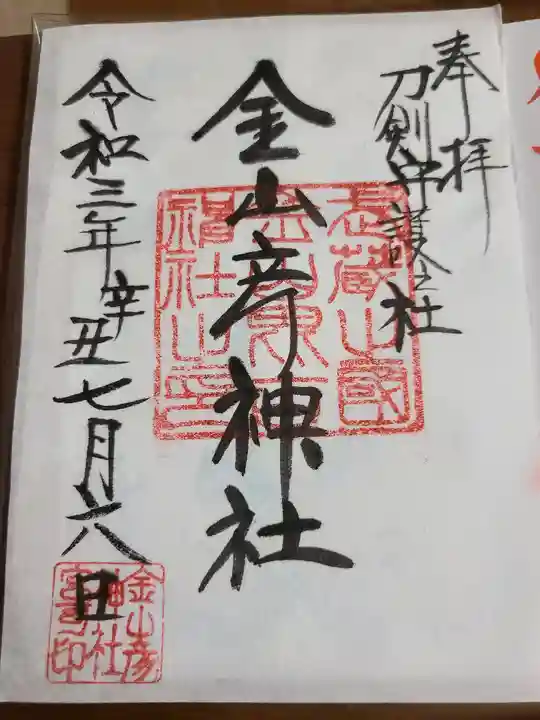 奉拝
刀剣守護之社
金山彦神社
令和三年辛丑七月六日
武蔵山国
稲社山印
金山彦
神社
宮司印